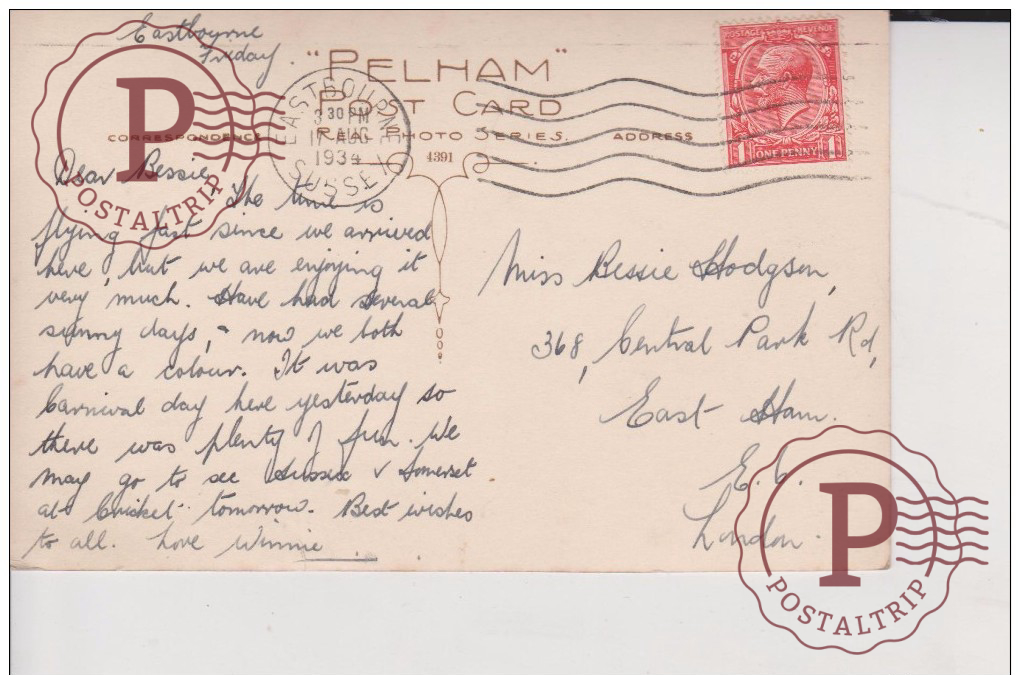 Eastbourne
Friday.
"PELHAM"
POST CARD
CORRESPONDENCE REAL PHOTO SERIES. ADDRESS
4391
EASTBOURNE
3 30 PM
17 AUG
1934
SUSSEX
POSTAGE REVENUE
1 ONE PENNY 1
Dear Bessie, The time is
flying fast since we arrived
here, but we are enjoying it
very much. Have had several
sunny days, & now we both
have a colour. It was
Carnival day here yesterday so
there was plenty of fun. We
may go to see Sussex v Somerset
at Cricket tomorrow. Best wishes
to all. Love Winnie
Miss Bessie Hodgson,
368, Central Park Rd,
East Ham.
E. 6.
London.
P
POSTALTRIP
P
POSTALTRIP